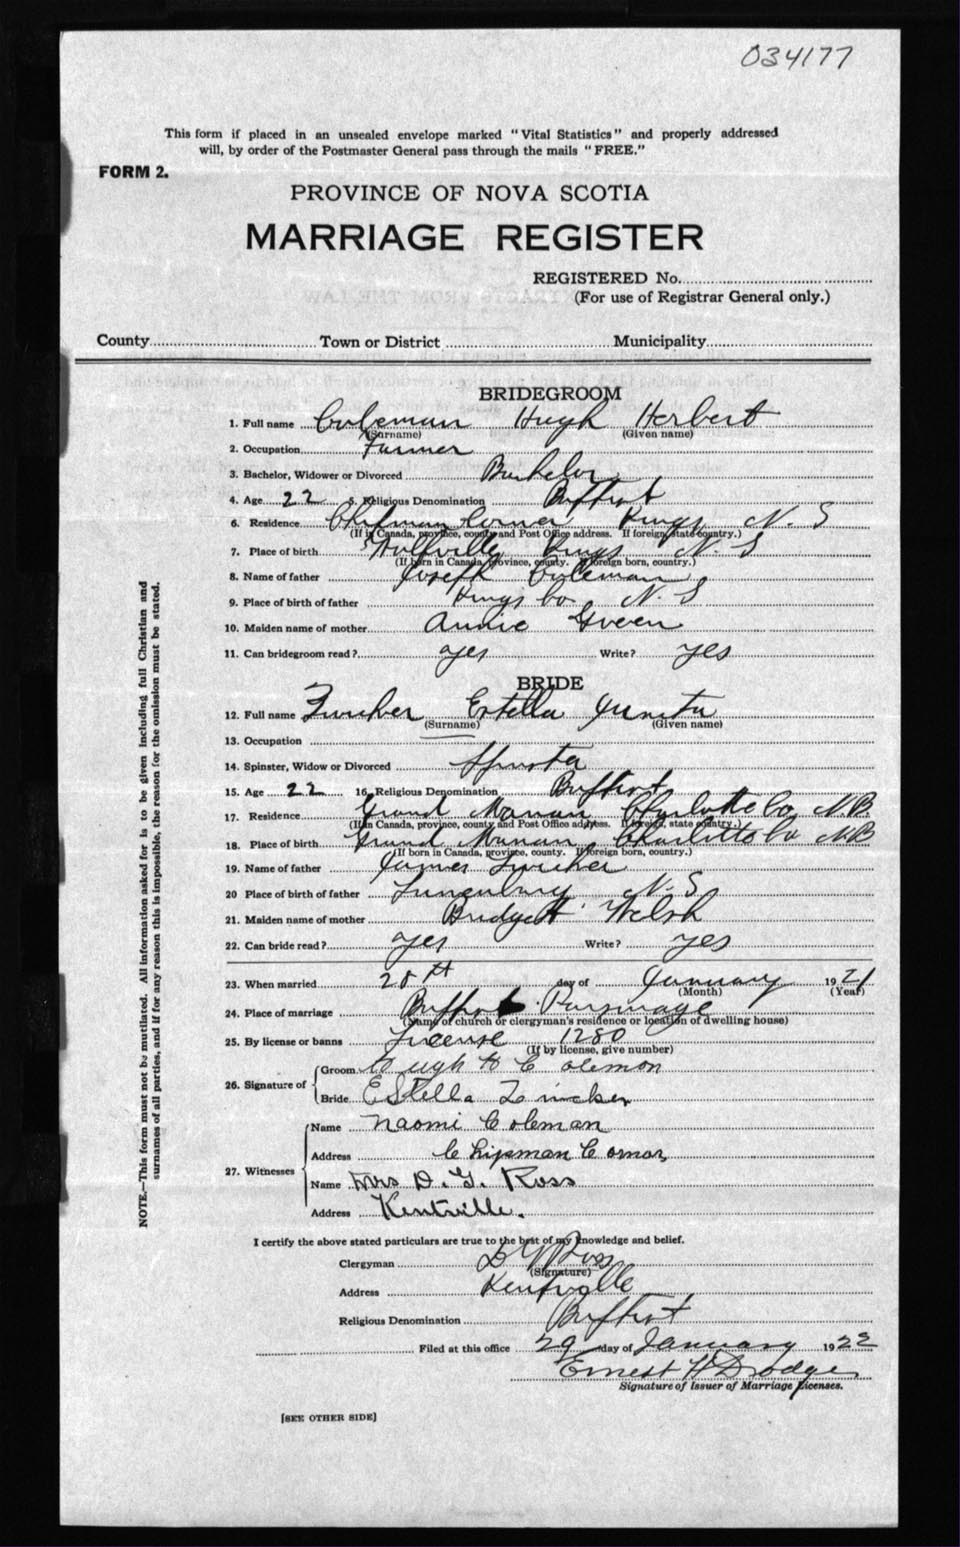 034177
This form if placed in an unsealed envelope marked "Vital Statistics" and properly addressed
will, by order of the Postmaster General pass through the mails "FREE."
FORM 2.
PROVINCE OF NOVA SCOTIA
MARRIAGE REGISTER
REGISTERED No.
(For use of Registrar General only.)
County Town or District Municipality
BRIDEGROOM
1. Full name Coleman Hugh Herbert
(Surname) (Given name)
2. Occupation Farmer
3. Bachelor, Widower or Divorced Bachelor
4. Age 22 5. Religious Denomination Baptist
6. Residence Chipman Corner Kings N. S
(If in Canada, province, county and Post Office address. If foreign, state country.)
7. Place of birth Wolfville Kings N. S
(If born in Canada, province, county. If foreign born, country.)
8. Name of father Joseph Coleman
9. Place of birth of father Kings Co N. S
10. Maiden name of mother Annie Green
11. Can bridegroom read? yes Write? yes
BRIDE
12. Full name Zwicker Estella Junita
(Surname) (Given name)
13. Occupation
14. Spinster, Widow or Divorced Spinster
15. Age 22 16. Religious Denomination Baptist
17. Residence Grand Manan Charlotte Co N.B.
(If in Canada, province, county and Post Office address. If foreign, state country.)
18. Place of birth Grand Manan Charlotte Co NB
(If born in Canada, province, county. If foreign born, country.)
19. Name of father James Zwicker
20 Place of birth of father Lunenburg N.S.
21. Maiden name of mother Bridgett Welsh
22. Can bride read? yes Write? yes
23. When married 28th day of January 1921
(Month) (Year)
24. Place of marriage Baptist Parsonage
(Name of church or clergyman's residence or location of dwelling house)
25. By license or banns License 1280
(If by license, give number)
26. Signature of Groom Hugh H Coleman
Bride EStella Zwicker
27. Witnesses Name Naomi Coleman
Address Chipman Corner
Name Mrs D. G. Ross
Address Kentville.
I certify the above stated particulars are true to the best of my knowledge and belief.
Clergyman D G Ross
(Signature)
Address Kentville
Religious Denomination Baptist
Filed at this office 29 day of January 1922
Ernest H Dodge
Signature of Issuer of Marriage Licenses.
[SEE OTHER SIDE]
NOTE.—This form must not be mutilated. All information asked for is to be given including full Christian and
surnames of all parties, and if for any reason this is impossible, the reason for the omission must be stated.